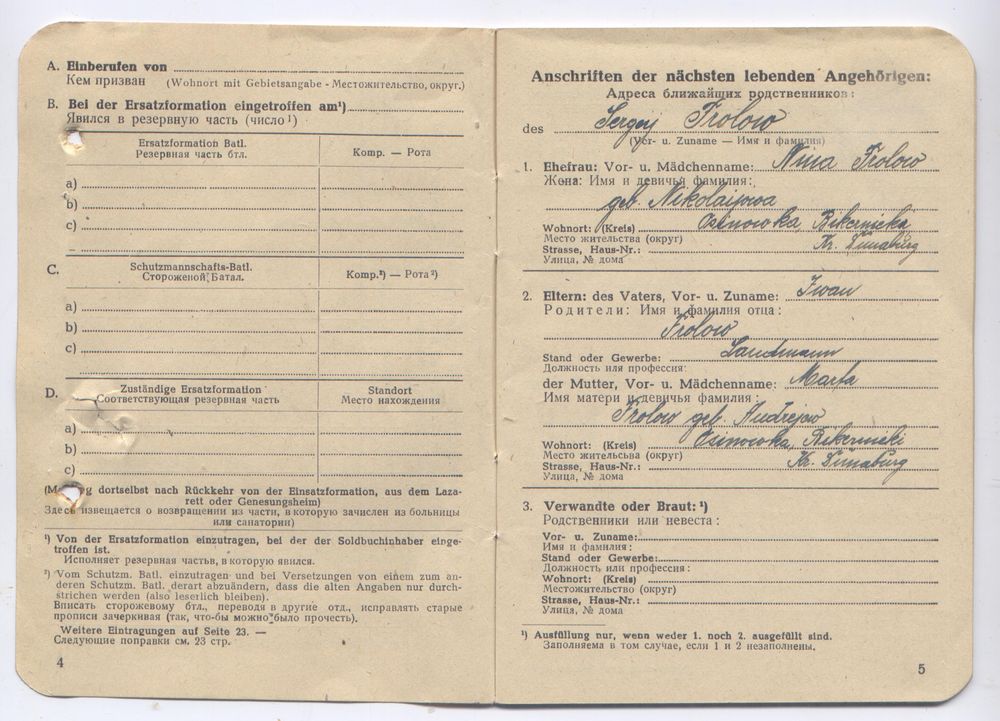 A. Einberufen von
Кем призван (Wohnort mit Gebietsangabe - Местожительство, округ.)
B. Bei der Ersatzformation eingetroffen am¹)
Явился в резервную часть (число¹)
Ersatzformation Batl.
Резервная часть бтл.
Komp. — Рота
a)
b)
c)
C. Schutzmannschafts-Batl.
Стороженой Батал.
Komp.²) — Рота²)
a)
b)
c)
D. Zuständige Ersatzformation
Соответствующая резервная часть
Standort
Место нахождения
a)
b)
c)
dortselbst nach Rückkehr von der Einsatzformation, aus dem Laza-
rett oder Genesungsheim)
Здесь извещается о возвращении из части, в которую зачислен из больницы
или санатории)
¹) Von der Ersatzformation einzutragen, bei der der Soldbuchinhaber einge-
troffen ist.
Исполняет резервная частьв, в которую явился.
²) Vom Schutzm. Batl. einzutragen und bei Versetzungen von einem zum an-
deren Schutzm. Batl. derart abzuändern, dass die alten Angaben nur durch-
strichen werden (also leserlich bleiben).
Вписать сторожевому бтл., перевода в другие отд., исправлять старые
прописи зачеркивая (так, что-бы можно было прочесть).
Weitere Eintragungen auf Seite 23. —
Следующие поправки см. 23 стр.
4
Anschriften der nächsten lebenden Angehörigen:
Адреса ближайших родственников:
des Sergej Frolow
(Vor- u. Zuname — Имя и фамилия)
1. Ehefrau: Vor- u. Mädchenname: Nina Frolow
Жена: Имя и девичья фамилия:
geb. Nikolajewa
Wohnort: (Kreis) Osinowka, Bikernieki
Место жительства (округ)
Strasse, Haus-Nr.: Kr. Dünaburg
Улица, № дома
2. Eltern: des Vaters, Vor- u. Zuname: Iwan
Родители: Имя и фамилия отца:
Frolow
Stand oder Gewerbe: Landmann
Должность или профессия:
der Mutter, Vor- u. Mädchenname: Marfa
Имя матери и девичья фамилия:
Frolow geb. Andrejew
Wohnort: (Kreis) Osinowka, Bikernieki
Место жительсьва (округ)
Strasse, Haus-Nr.: Kr. Dünaburg
Улица, № дома
3. Verwandte oder Braut: ¹)
Родственники или невеста:
Vor- u. Zuname:
Имя и фамилия:
Stand oder Gewerbe:
Должность или профессия:
Wohnort: (Kreis)
Местожительство (округ)
Strasse, Haus-Nr.:
Улица, № дома
¹) Ausfüllung nur, wenn weder 1. noch 2. ausgefüllt sind.
Заполняема в том случае, если 1 и 2 незаполнены.
5